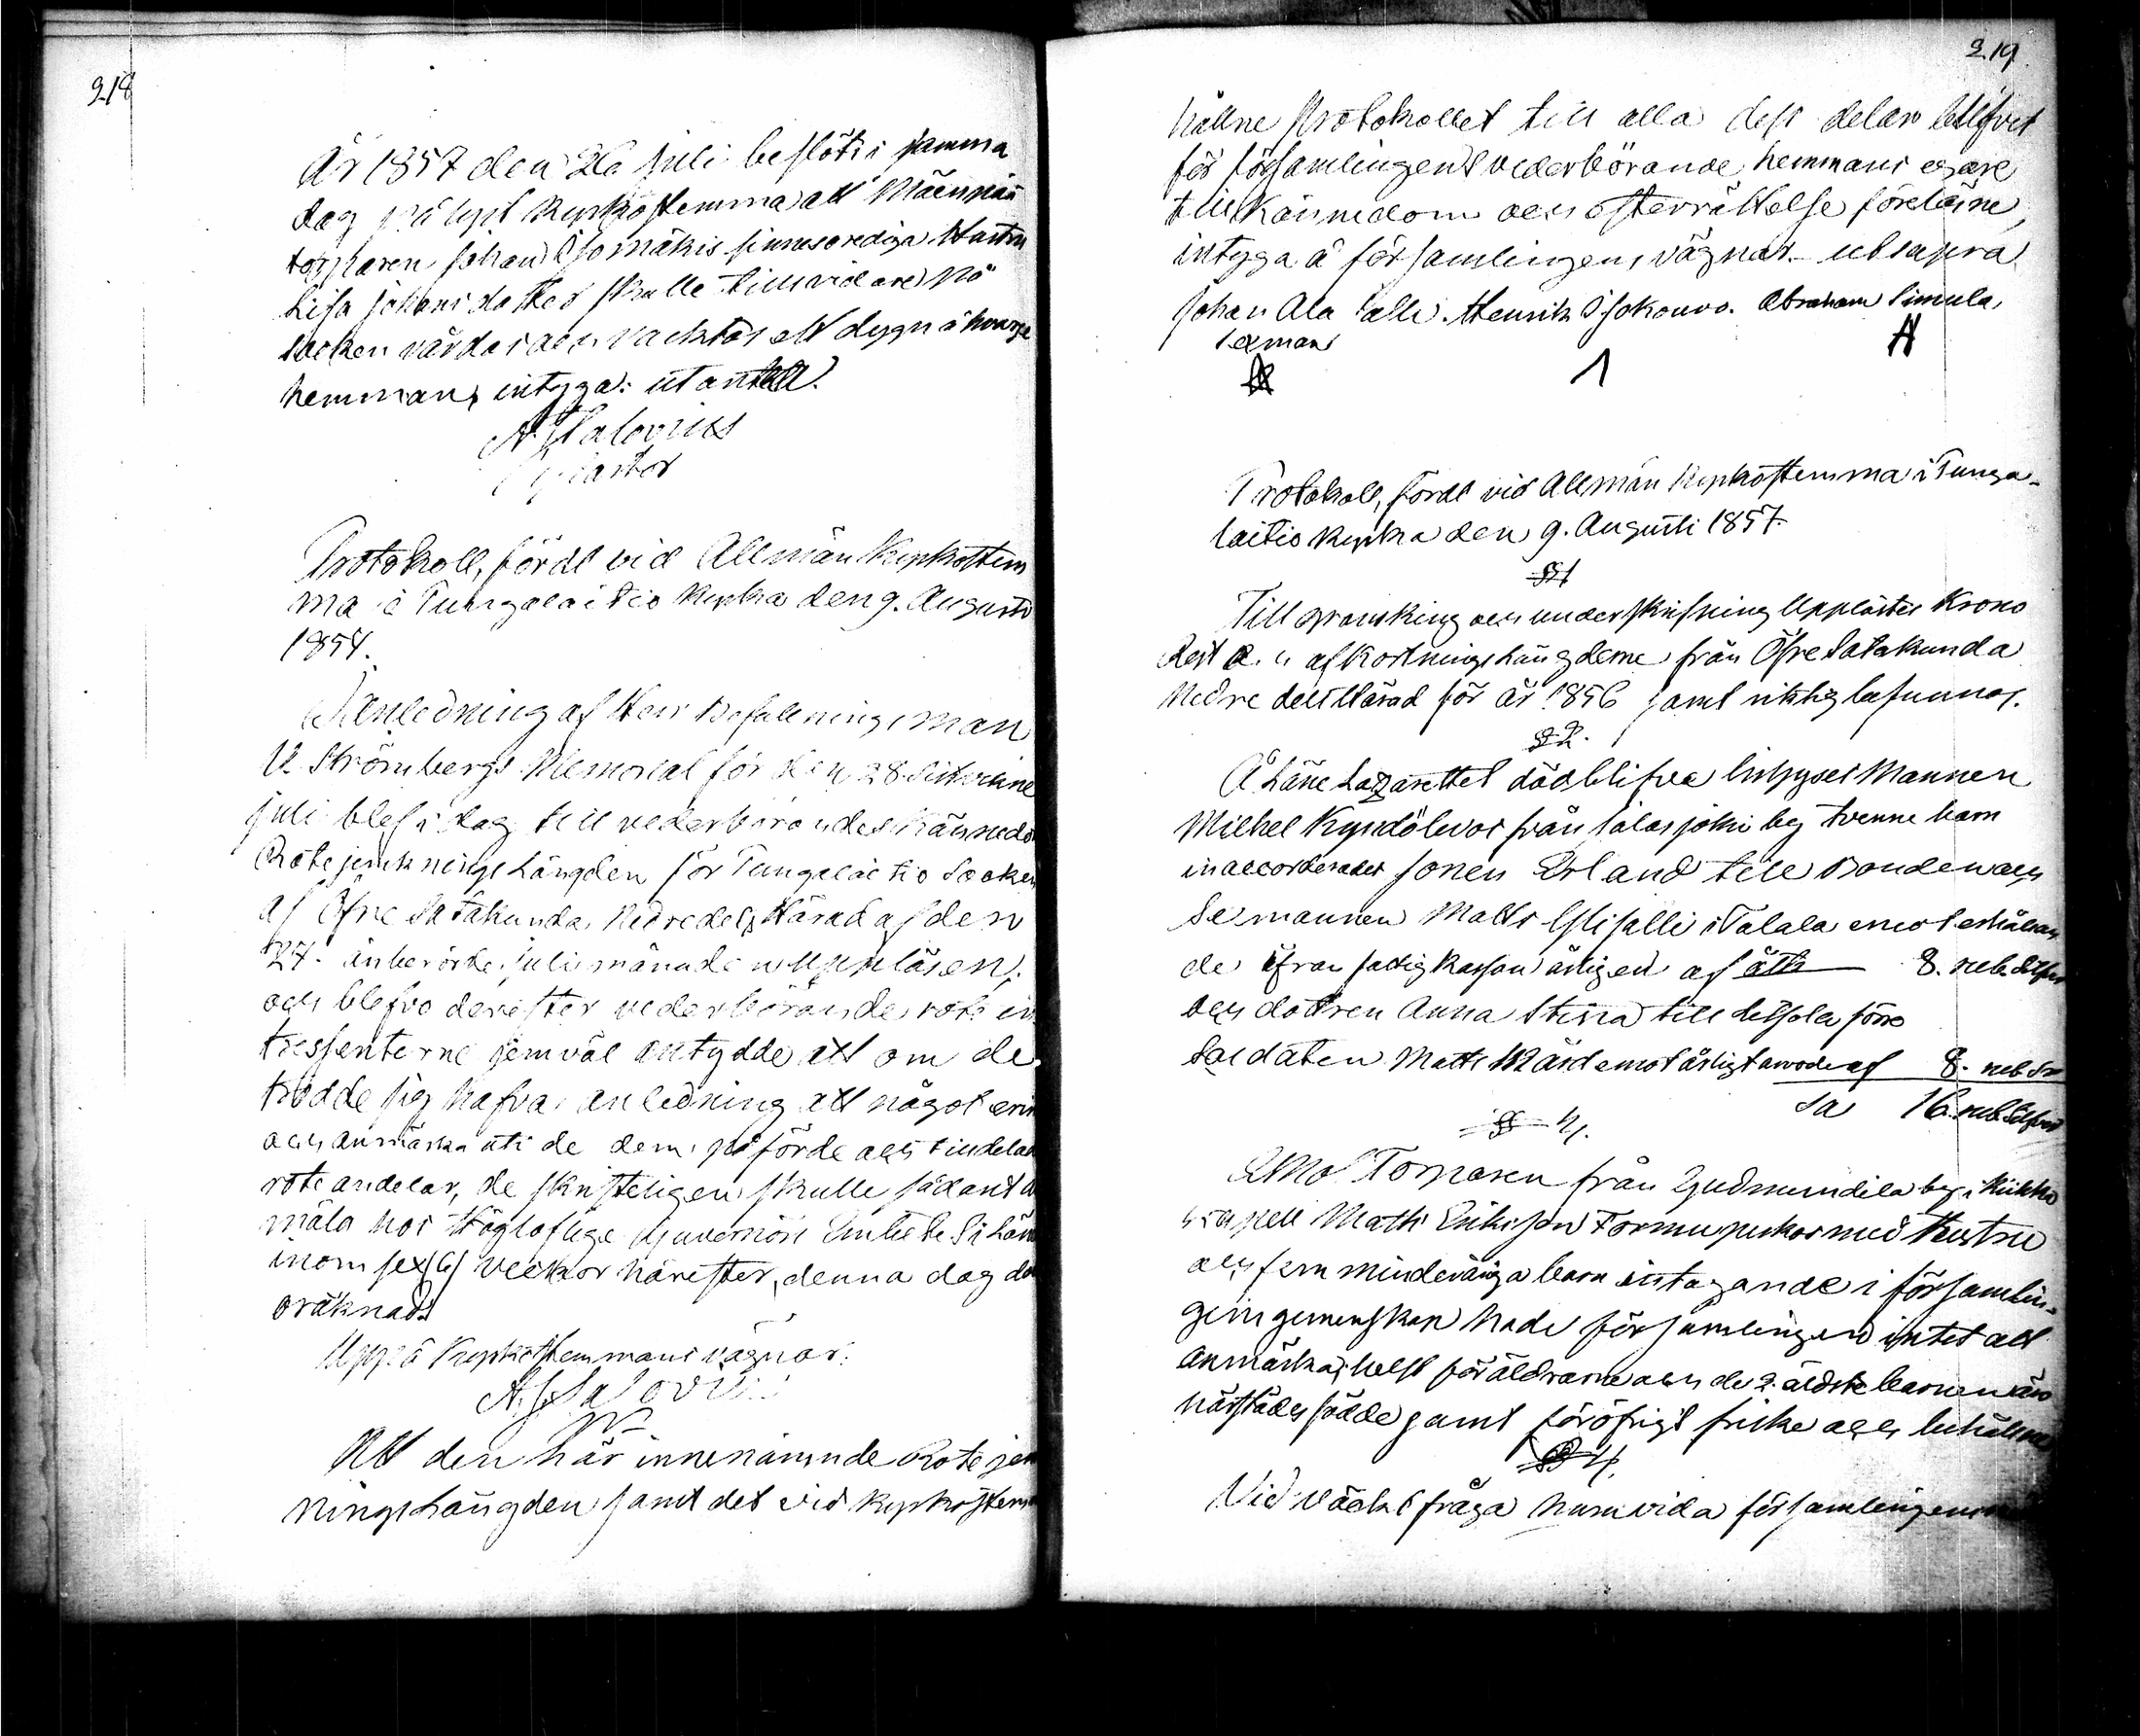 218
År 1857 den 26 Juli beslöts i samma
dag på lyst Kyrkostemma att
torparen Johan Isomäkis sinnesorediga Hustru
Lisa Johansdotter skulle tillsvidare på
Socken vårdas och vacktas ett dygn å hvarje
hemman, intyga: utantill.
A. J. Salovius
Pastor
Protokoll, fördt vid Allmän Kyrkostem
ma i Pungalaitio Kyrka den 9. Augusti
1857.
I Anledning af Herr Befallningsman
U. Strömbergs Memorial för den 28. Sistvikne
Juli blef i dag till vederbörandes Kännedo
Rotejemknings Längden för Pungalaitio Socken
af Öfre Satakunda, Nedredels Härad af den
27. inberörde Juli månad uppläsen,
och blefvo derefter vederbörande rote in
tressenterne jemväl antydde att om de
trodde sig hafva anledning att något erin
och anmärka uti de dem påförde och indelade
roteandelar, de skrifteligen skulle sådant a
mäla hos Högloflige Guvernörs Embetet i Län
inom sex (6) veckor härefter, denna dag de
oräknad.
Uppå Kyrkostemmans vägnar:
A. J. Salovius
Att den här innenämnde Rotejem
ningsLängden samt det vid Kyrkostemm
219
hållne Protokollet till alla dess delar blifvit
för församlingens vederbörande hemmans egare
till Kännedom och efterrättelse föreläsne,
intyga å församlingens vägnar. ut supra
Johan Ala Salli. Henrik Isokouvo. Abraham Simula,
Sexman
Protokoll, fördt vid Allmän Kyrkostemma i Punga-
laitio Kyrka den 9. Augusti 1857.
§ 1
Till granskning och underskrifning Upplästes Krono
Rest och afkortningsLängderne från Öfre Satakunda
Nedre dels Härad för år 1856 samt riktig befunnos.
§ 2.
Å Läne Lazarettet dödblifne Mannen
Milkel från Salasjoki by tvenne barn
inaccorderades sonen Erland till Bonden och
Sexmannen Matts Ylisalli i Talala emot erhållan
de ifrån fattigkassan årligen af 8. rub. Silfver
och dottren Anna Stina till
Soldaten Matts Wärd emot årligt arvode af 8. rub. Sr
Sa 16. rub. Silfver
§ 3.
Emot Torparen från Gudmundila by i Kiikka
Capell Matts Eriksson med Hustru
och fem minderåriga barn intagande i försambin-
gens gemenskap hade församlingen intet att
anmärka, helst föräldrarne och de 2. äldste barnen äro
härstädes födde samt föröfrigt friske och behållne
§ 4.
Vid väckt fråga huruvida församlingens